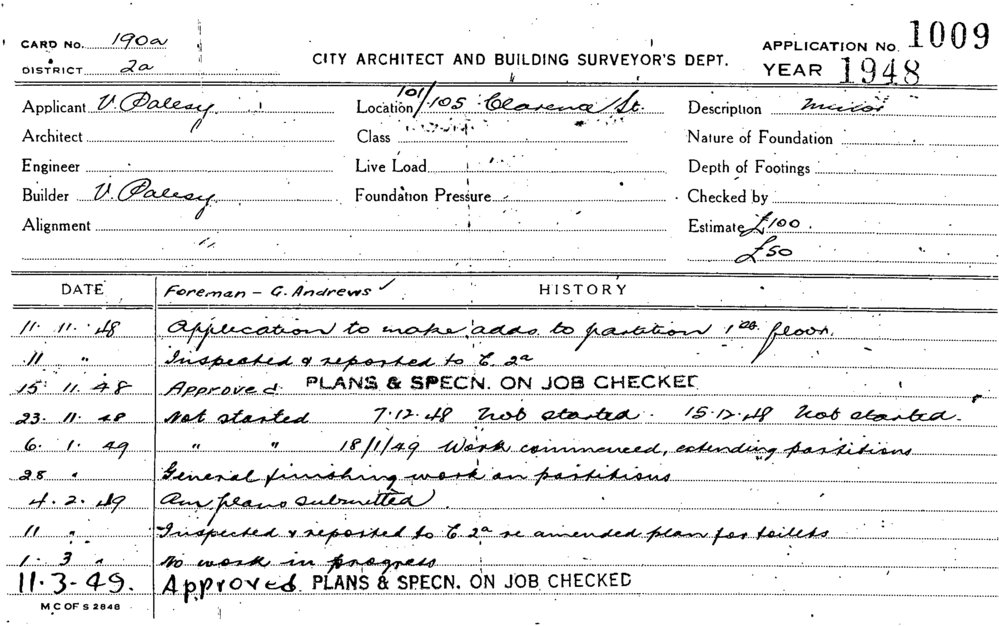 CARD No. 190a
DISTRICT 2a
CITY ARCHITECT AND BUILDING SURVEYOR'S DEPT.
APPLICATION No. 1009
YEAR 1948
Applicant V. Palesy Location 101/105 Clarence St. Description Minor
Architect Class Nature of Foundation
Engineer Live Load Depth of Footings
Builder V. Palesy Foundation Pressure Checked by
Alignment Estimate £100
£50
DATE Foreman - G. Andrews HISTORY
11. 11. 48 Application to make adds to partition 1st floor.
11 " Inspected & reported to C. 2a
15. 11. 48 Approved PLANS & SPECN. ON JOB CHECKED
23. 11. 48 Not started 7.12.48 Not started. 15.12.48 Not started.
6. 1. 49 " " 18/1/49 Work commenced, extending partitions
28 " General finishing work on partitions
4. 2. 49 Am plans submitted
11 " Inspected & reported to C. 2a re amended plan for toilets
1. 3 " No work in progress
11.3.49. Approved PLANS & SPECN. ON JOB CHECKED
M C OF S 2848